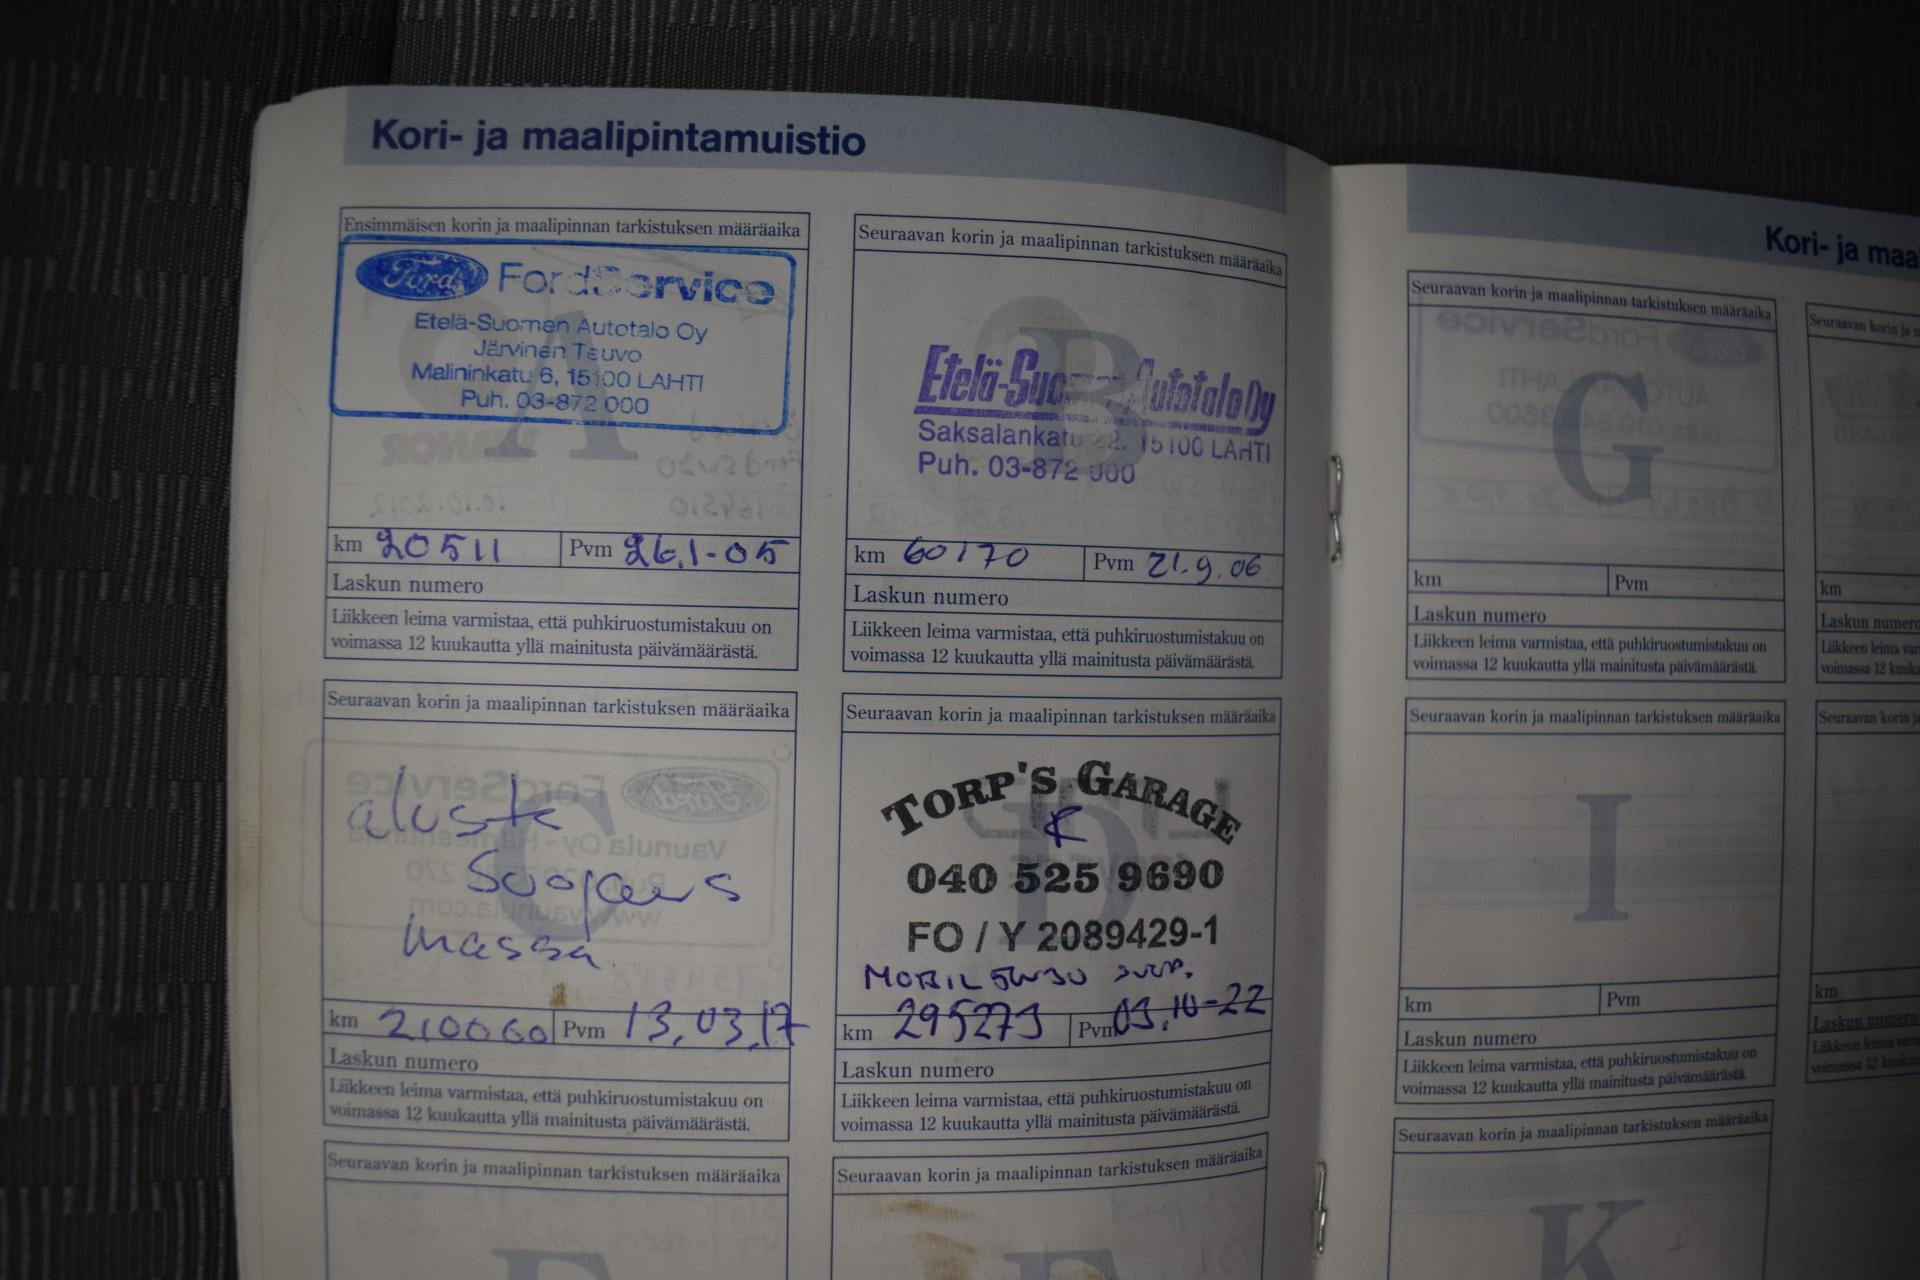 Kori- ja maalipintamuistio
Ensimmäisen korin ja maalipinnan tarkistuksen määräaika
Ford FordService
Etelä-Suomen Autotalo Oy
Järvinen Teuvo
Malininkatu 6, 15100 LAHTI
Puh. 03-872 000
A
km 20511 Pvm 26.1-05
Laskun numero
Liikkeen leima varmistaa, että puhkiruostumistakuu on
voimassa 12 kuukautta yllä mainitusta päivämäärästä.
Seuraavan korin ja maalipinnan tarkistuksen määräaika
B
Etelä-Suomen Autotalo Oy
Saksalankatu 22. 15100 LAHTI
Puh. 03-872 000
km 60170 Pvm 21.9.06
Laskun numero
Liikkeen leima varmistaa, että puhkiruostumistakuu on
voimassa 12 kuukautta yllä mainitusta päivämäärästä.
Seuraavan korin ja maalipinnan tarkistuksen määräaika
C
alusta
suojaus
massa
km 210060 Pvm 13.03.17
Laskun numero
Liikkeen leima varmistaa, että puhkiruostumistakuu on
voimassa 12 kuukautta yllä mainitusta päivämäärästä.
Seuraavan korin ja maalipinnan tarkistuksen määräaika
D
TORP'S GARAGE
040 525 9690
FO / Y 2089429-1
MOBIL 5W30
km 295273 Pvm 03.10-22
Laskun numero
Liikkeen leima varmistaa, että puhkiruostumistakuu on
voimassa 12 kuukautta yllä mainitusta päivämäärästä.
Seuraavan korin ja maalipinnan tarkistuksen määräaika
Seuraavan korin ja maalipinnan tarkistuksen määräaika
Kori- ja maa
Seuraavan korin ja maalipinnan tarkistuksen määräaika
G
km Pvm
Laskun numero
Liikkeen leima varmistaa, että puhkiruostumistakuu on
voimassa 12 kuukautta yllä mainitusta päivämäärästä.
Seuraavan korin ja maalipinnan tarkistuksen määräaika
I
km Pvm
Laskun numero
Liikkeen leima varmistaa, että puhkiruostumistakuu on
voimassa 12 kuukautta yllä mainitusta päivämäärästä.
Seuraavan korin ja maalipinnan tarkistuksen määräaika
K
Seuraavan korin ja
km
Laskun numero
Liikkeen leima
voimassa 12
Seuraavan korin
km
Laskun numero
Liikkeen leima
voimassa 12